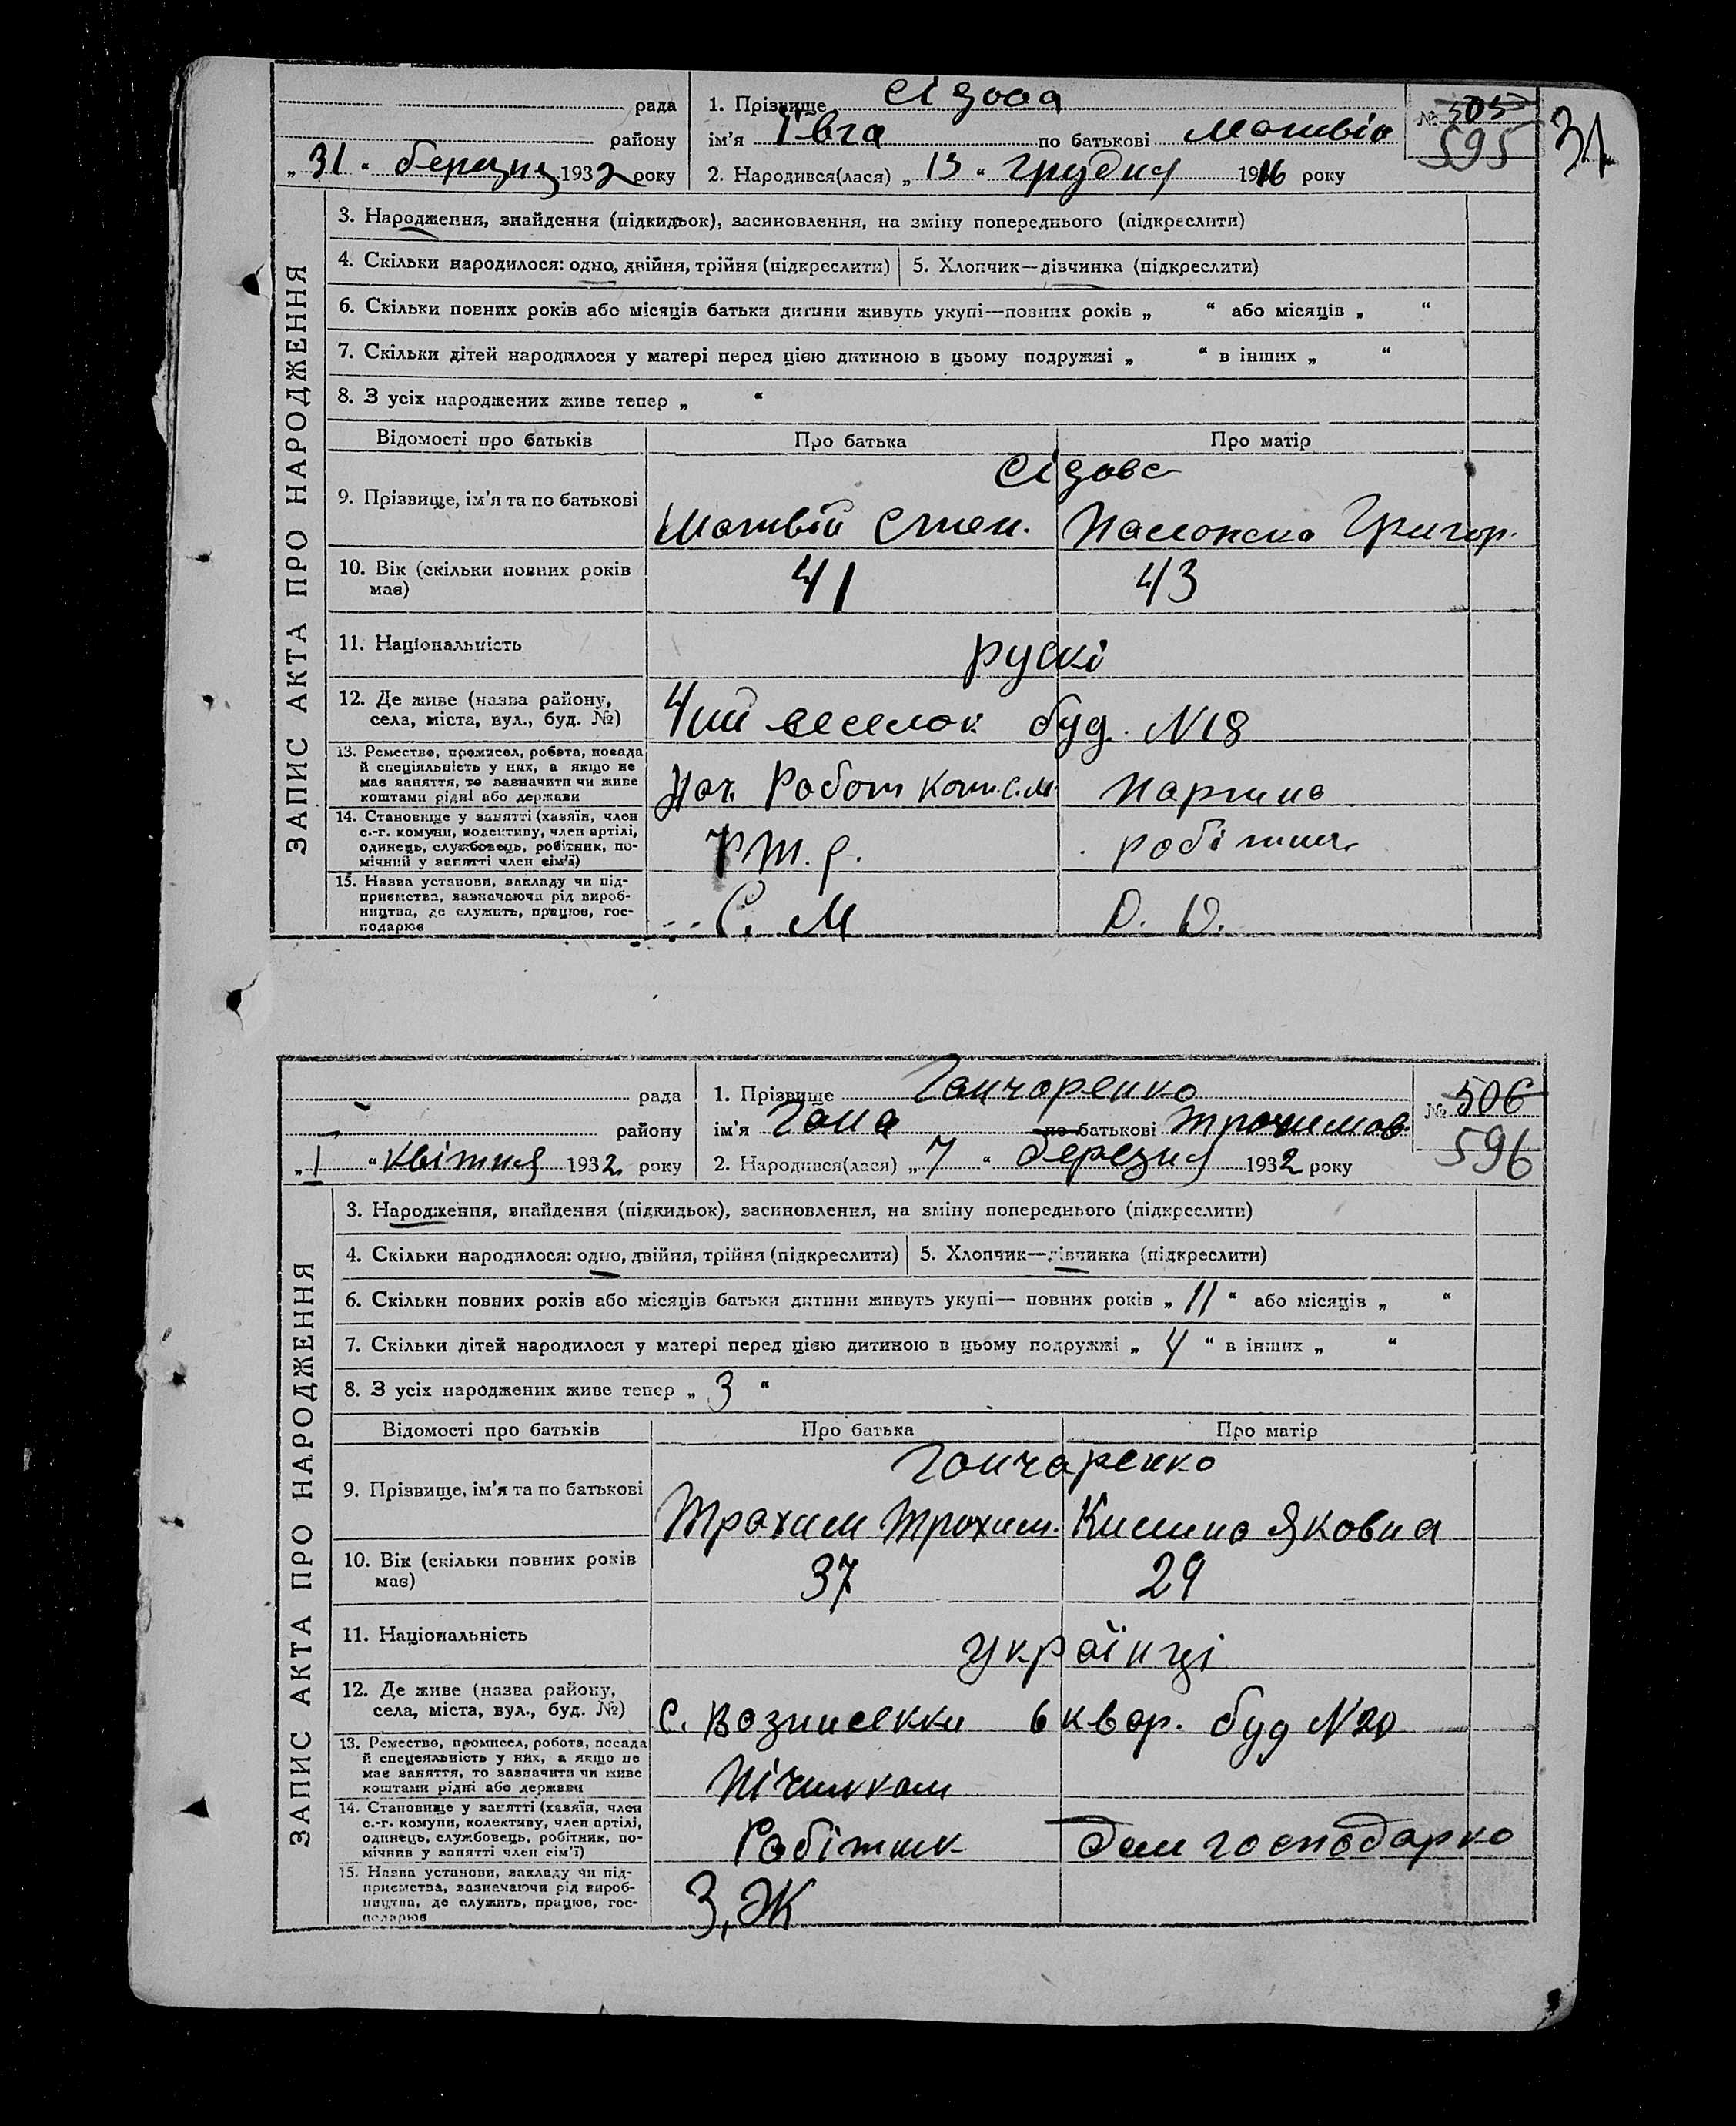 рада
району
„31“ березня 1932 року
1. Прізвище Сідова
ім'я Ївга по батькові Матвіє
2. Народився(лася) „13“ грудня 1916 року
№ 505
595
31
ЗАПИС АКТА ПРО НАРОДЖЕННЯ
3. Народження, знайдення (підкидьок), засиновлення, на зміну попереднього (підкреслити)
4. Скільки народилося: одно, двійня, трійня (підкреслити) 5. Хлопчик—дівчинка (підкреслити)
6. Скільки повних років або місяців батьки дитини живуть укупі—повних років „ “ або місяців „ “
7. Скільки дітей народилося у матері перед цією дитиною в цьому подружжі „ “ в інших „ “
8. З усіх народжених живе тепер „ “
Відомості про батьків Про батька Про матір
Сідове
9. Прізвище, ім'я та по батькові Матвій Степ. Григор.
10. Вік (скільки повних років має) 41 43
11. Національність рускі
12. Де живе (назва району, села, міста, вул., буд. №) 4ий буд. N18
13. Ремество, промисел, робота, посада й спеціяльність у них, а якщо не має заняття, то зазначити чи живе коштами рідні або держави Нач. Робот
14. Становище у занятті (хазяїн, член с.-г. комуни, колективу, член артілі, одинець, службовець, робітник, помічний у занятті член сім'ї) робітниц
15. Назва установи, закладу чи підприємства, зазначаючи рід виробництва, де служить, працює, господарює С. М
рада
району
„1“ квітня 1932 року
1. Прізвище Гончаренко
ім'я Гана по батькові Трохимов.
2. Народився(лася) „7“ березня 1932 року
№ 506
596
ЗАПИС АКТА ПРО НАРОДЖЕННЯ
3. Народження, знайдення (підкидьок), засиновлення, на зміну попереднього (підкреслити)
4. Скільки народилося: одно, двійня, трійня (підкреслити) 5. Хлопчик—дівчинка (підкреслити)
6. Скільки повних років або місяців батьки дитини живуть укупі— повних років „11“ або місяців „ “
7. Скільки дітей народилося у матері перед цією дитиною в цьому подружжі „4“ в інших „ “
8. З усіх народжених живе тепер „3“
Відомості про батьків Про батька Про матір
Гончаренко
9. Прізвище, ім'я та по батькові Трохим Трохим. Яковна
10. Вік (скільки повних років має) 37 29
11. Національність українці
12. Де живе (назва району, села, міста, вул., буд. №) с. Вознисекки 6 квар. буд N20
13. Ремество, промисел, робота, посада й спецеяльність у них, а якщо не має заняття, то зазначити чи живе коштами рідні або держави
14. Становище у занятті (хазяїн, член с.-г. комуни, колективу, член артілі, одинець, службовець, робітник, помічнив у занятті член сім'ї) Робітник Дом господарко
15. Назва установи, закладу чи підприємства, зазначаючи рід виробництва, де служить, працює, господарює З, Ж